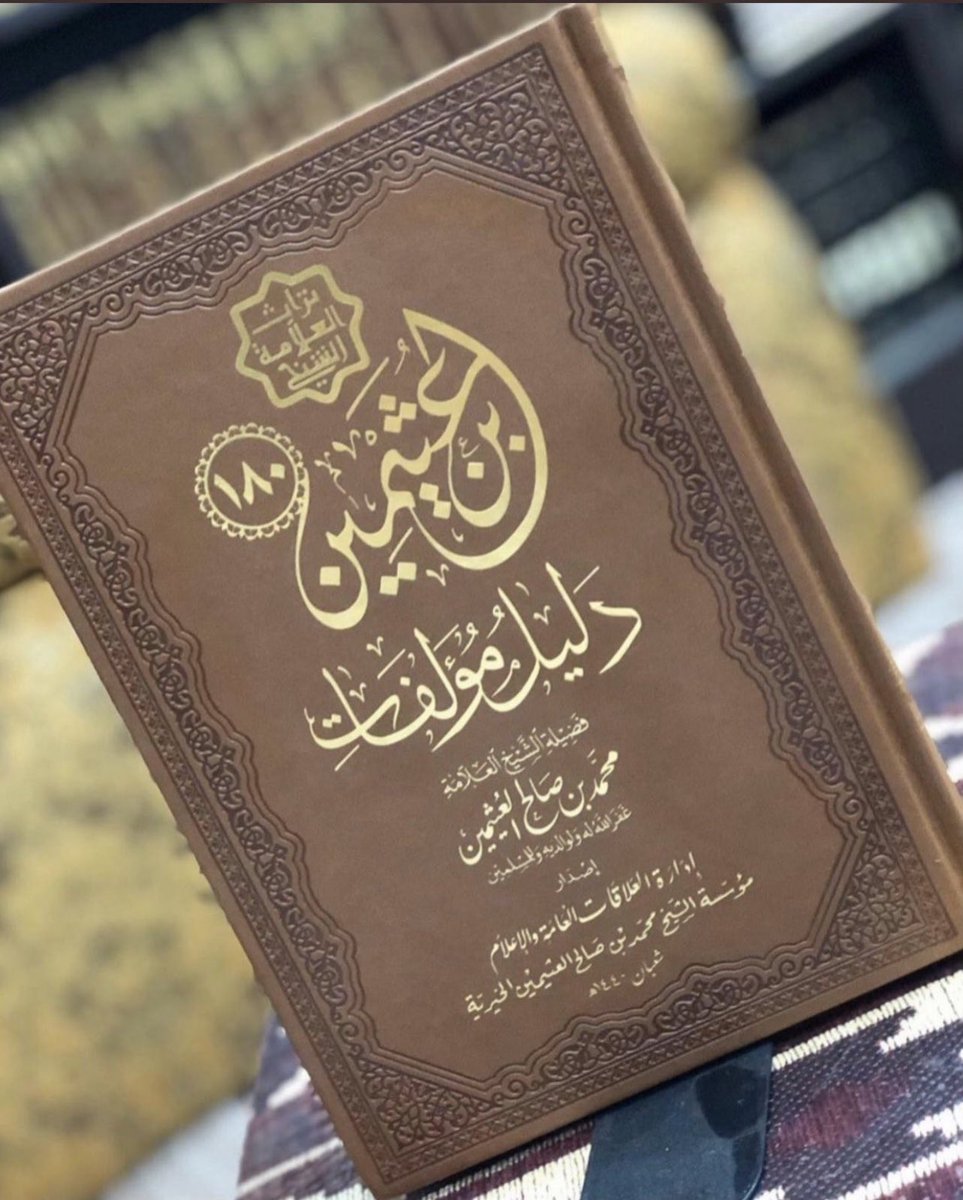 تراث
العلامة
الشيخ
بن عثيمين
١٨٠
دَلِيلُ مُؤَلَّفَاتِ
فَضِيلَة الشَّيْخ العَلَّامَة
محمَّد بن صالح العُثيمين
غَفَرَ اللهُ لَهُ وَلِوَالِدَيْهِ وَلِلْمُسْلِمِينَ
إصْدَار
إدارة العلاقات العامة والإعلام
مؤسّسة الشيخ محمد بن صالح العثيمين الخيرية
شعبان ١٤٤٠هـ